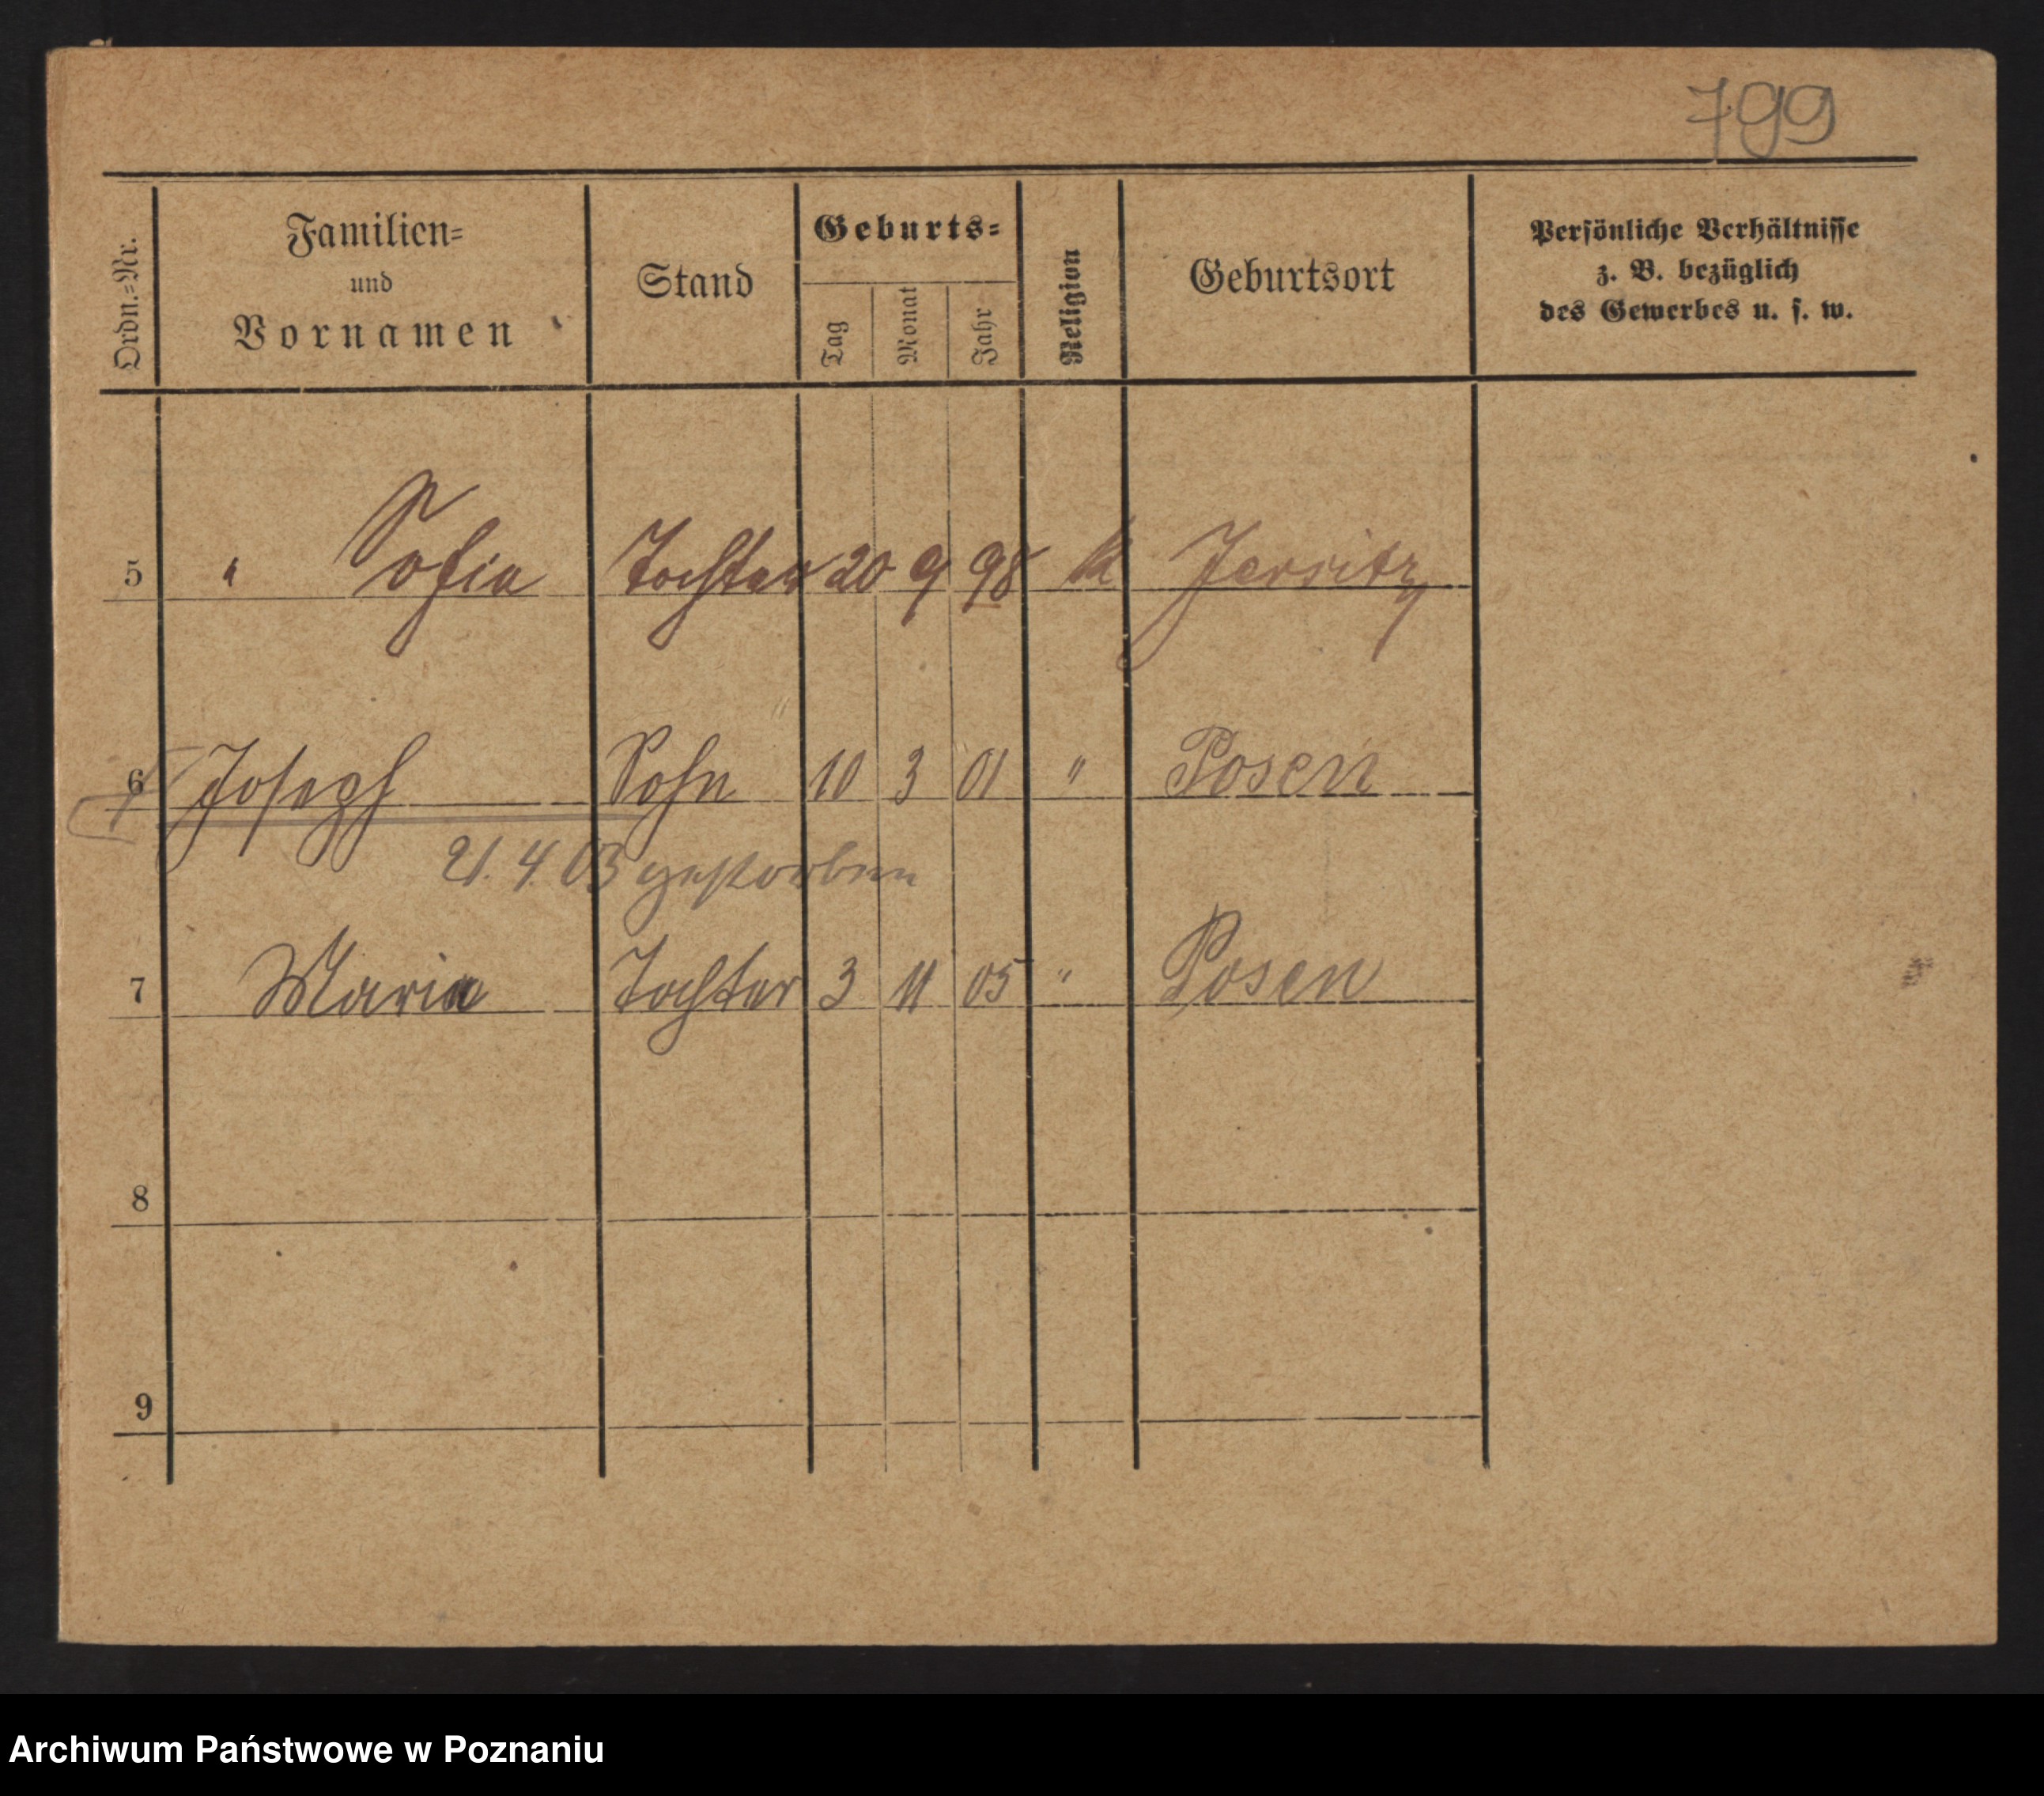 799
Ordn.=Nr.
Familien=
und
Vornamen
Stand
Geburts=
Tag
Monat
Jahr
Religion
Geburtsort
Persönliche Verhältnisse
z. B. bezüglich
des Gewerbes u. s. w.
5 " Sofia Tochter 20 9 98 k Jersitz
6 Joseph Sohn 10 3 01 " Posen
21. 4. 03 gestorben
7 Maria Tochter 3 11 05 " Posen
8
9
Archiwum Państwowe w Poznaniu